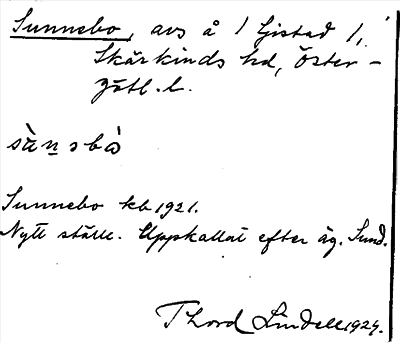 Sunnebo, avs å 1 Gistad 1,
Skärkinds hd, Öster-
götl. l.
sùn̲əbò
Sunnebo kb 1921.
Nytt ställe. Uppkallat efter äg. Sund.
Thord Lindell 1929.